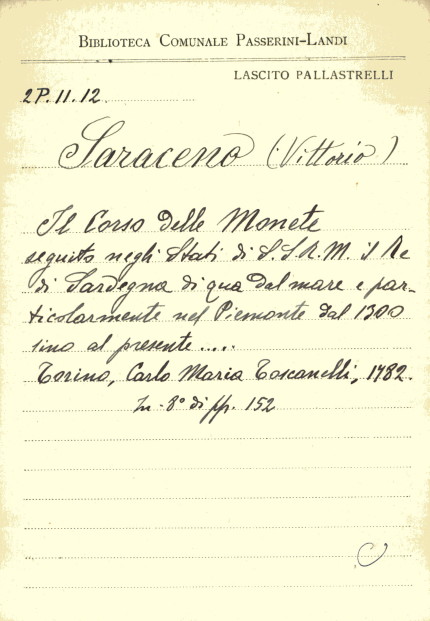 BIBLIOTECA COMUNALE PASSERINI-LANDI
LASCITO PALLASTRELLI
2P.11.12.
Saraceno (Vittorio)
Il Corso delle Monete
seguito negli Stati di S.S.R.M. il Re
di Sardegna di qua dal mare e par-
ticolarmente nel Piemonte dal 1300
sino al presente.....
Torino, Carlo Maria Toscanelli, 1782.
In-8° di pp. 152